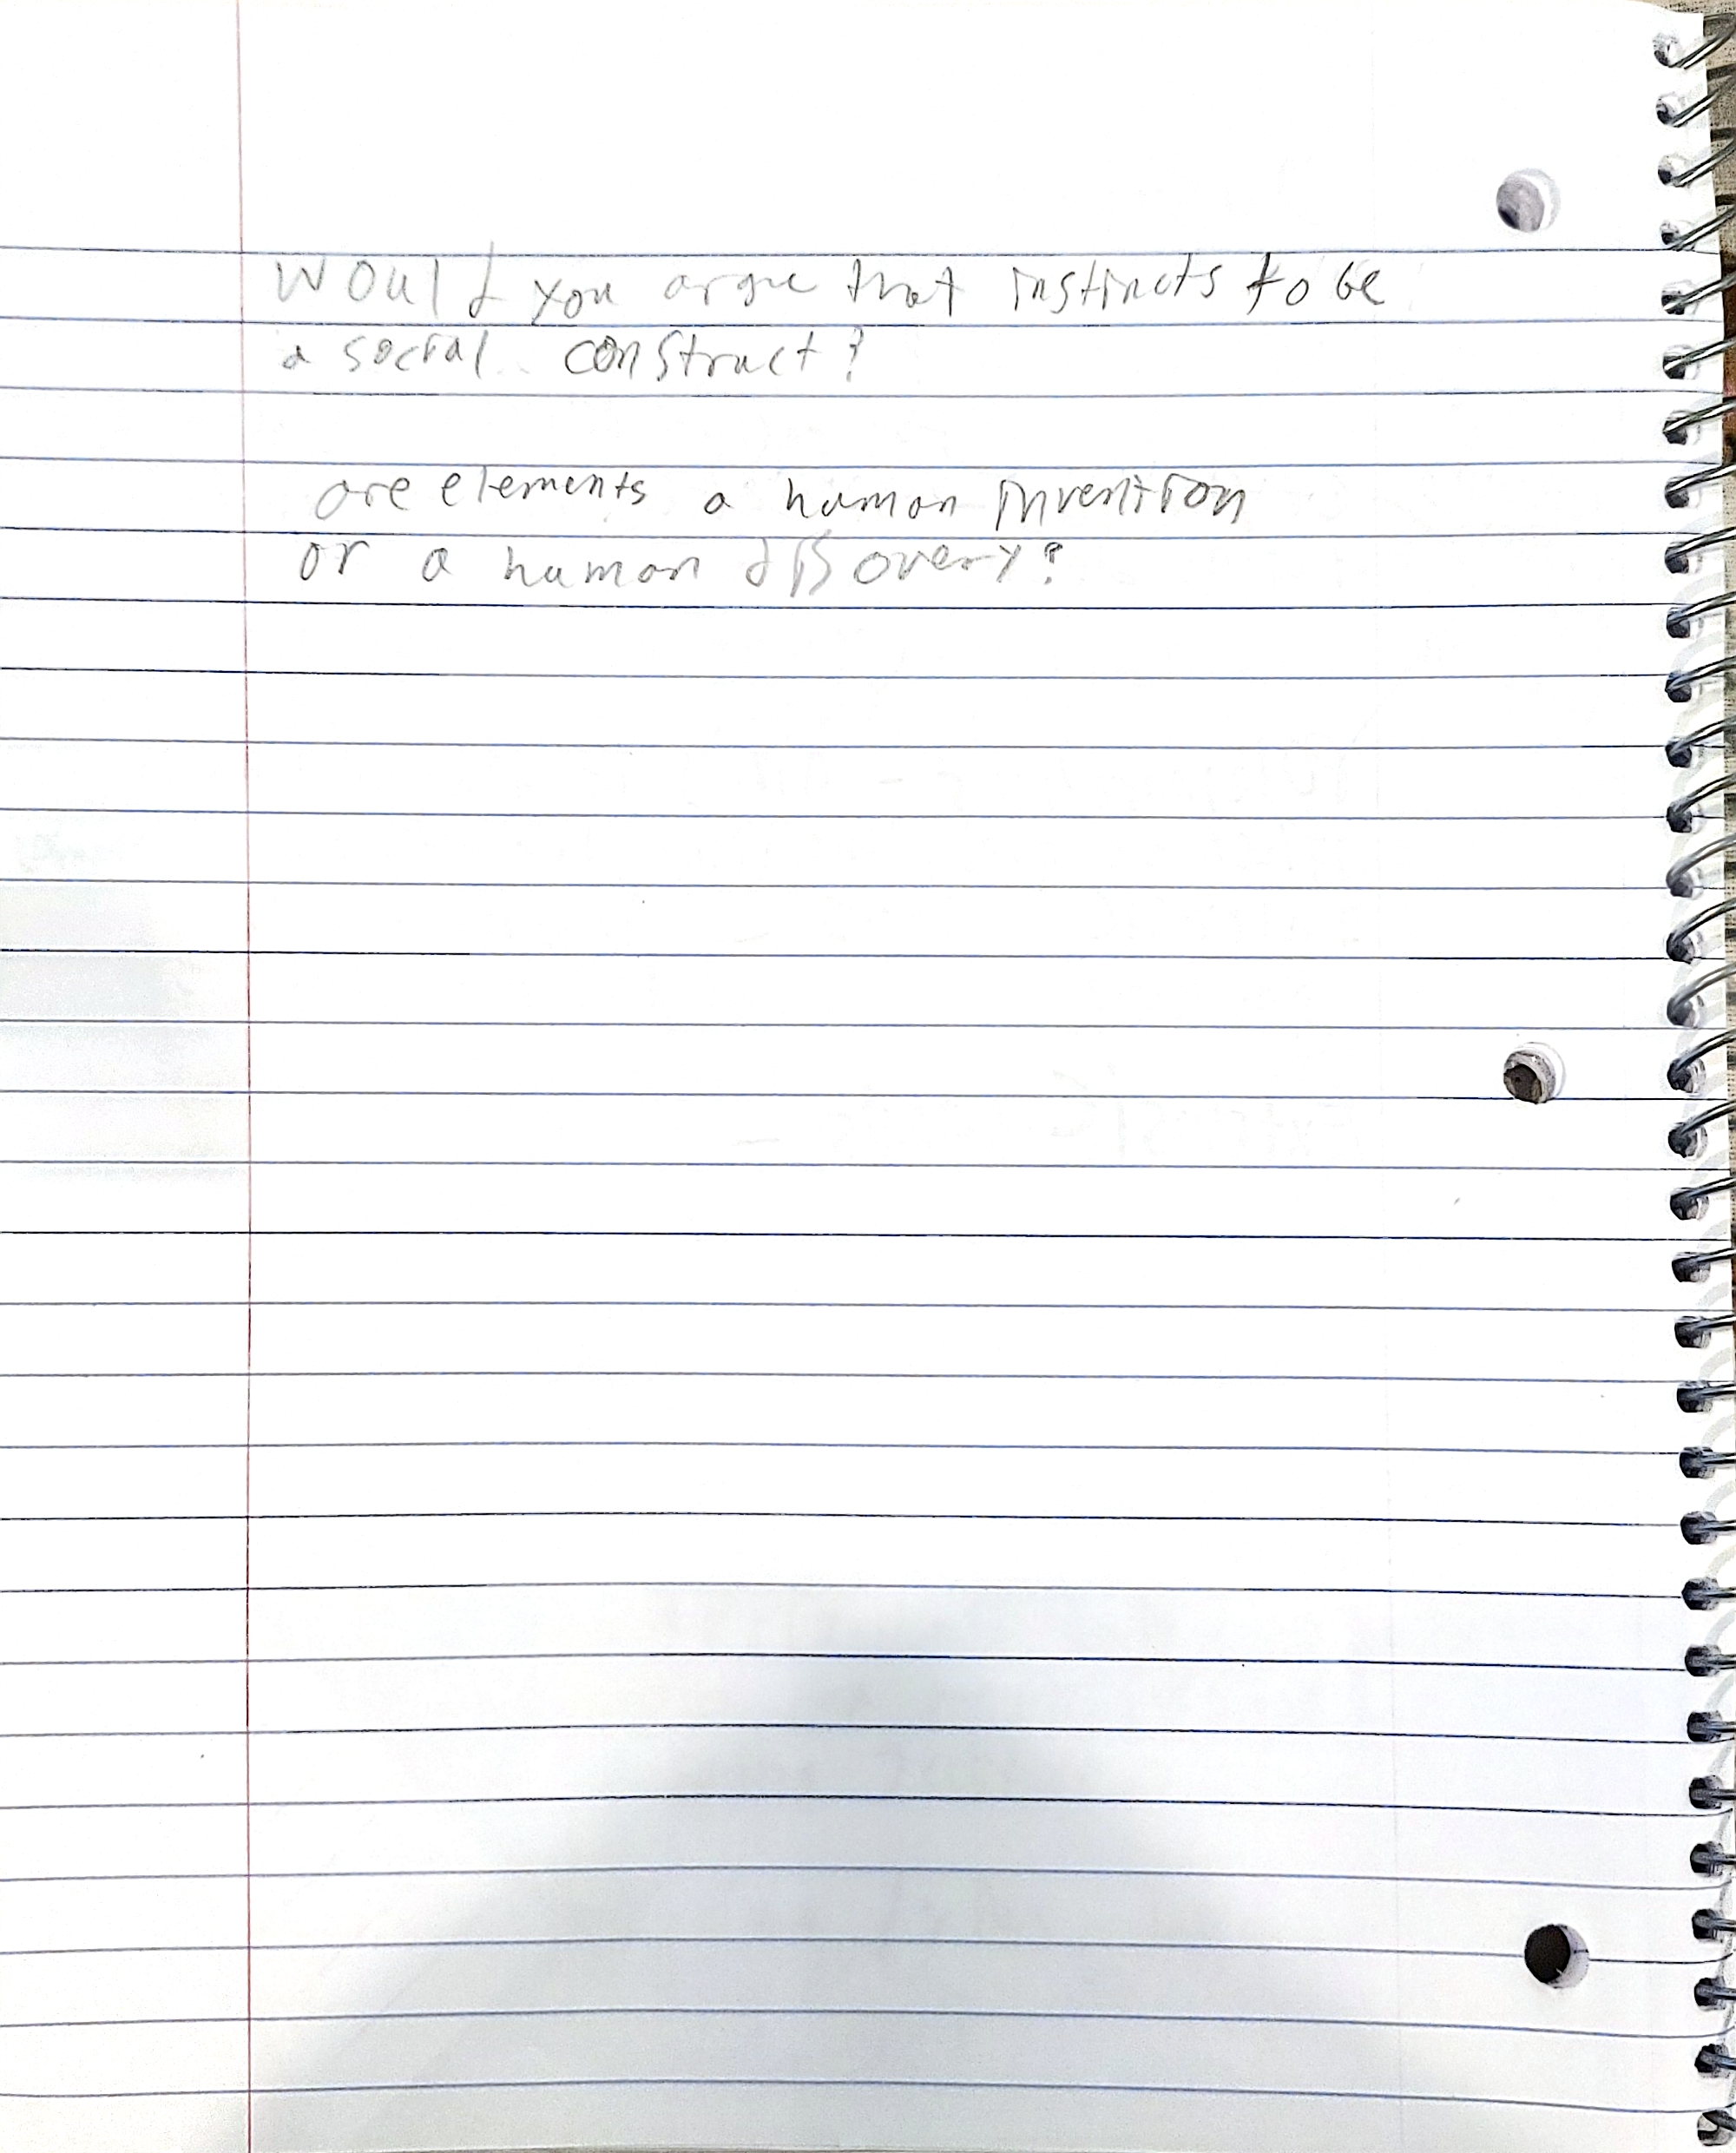 Would you argue that instincts to be
a social construct?
are elements a human invention
or a human discovery?